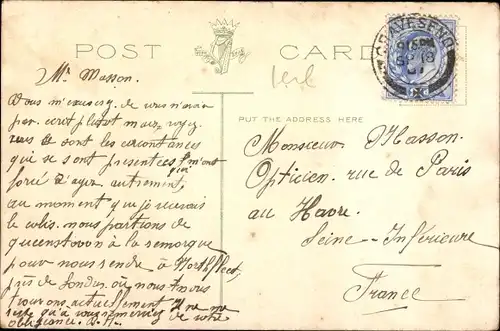 POST CARD
GRAVESEND
PUT THE ADDRESS HERE
Mr Masson.
Vous m'excuserez de vous avoir
pas ecrit plutot mais voyez
vous ce sont les circonstances
qui se sont presentées qui m'ont
forcé d'agir autrement,
au moment que je recevais
le colis. nous partions de
queenstown à la remorque
pour nous rendre à Northfleet,
près de Londres où nous nous
trouvons actuellement Il ne me
reste qu'à vous remercier de votre
obligeance
Monsieur Masson.
Opticien. rue de Paris
au Havre.
Seine-Inférieure
France